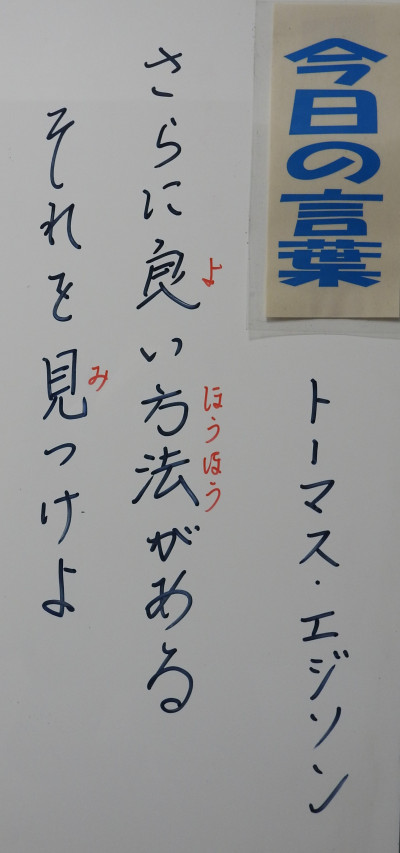 今日の言葉
トーマス・エジソン
さらに良い方法がある
よ
ほうほう
それを見つけよ
み